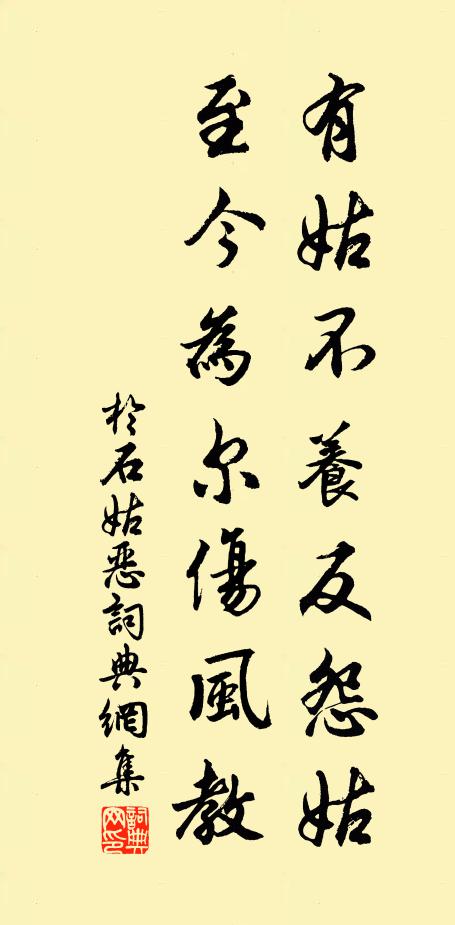 有姑不養反怨姑
至今為尔傷風教
於石姑惡詞典網集
詞典网印